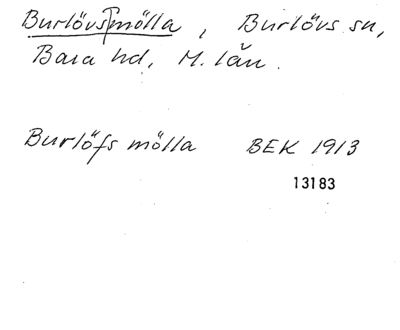 Burlövsmölla, Burlövs sn,
Bara hd, M. län.
Burlöfs mölla BEK 1913
13183